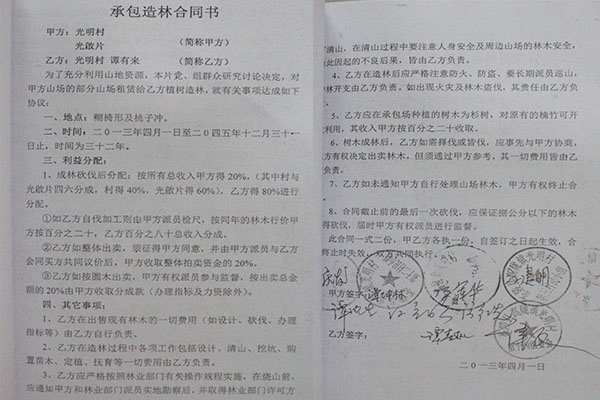 承包造林合同书
甲方：光明村
光啟片 （简称甲方）
乙方：光明村 谭有来 （简称乙方）
为了充分利用山地资源，本片党、组群众研究讨论决定，对
甲方山场的部分山场租赁给乙方植树造林，就有关事项达成如下
协议：
一、地点：糊椅形及桃子冲。
二、时间：二0一三年四月一日至二0四五年十二月三十一
日止，时间为三十二年。
三、利益分配：
1、成林砍伐后分配：按所有总收入甲方得 20%，（其中村与
光啟片四六分成，村得 40%、光啟片得 60%），乙方得 80%进行
分配。
①如乙方自伐加工则由甲方派员检尺，按同年的林木行价甲
方按百分之二十，乙方百分之八十总收入分成。
②如乙方整体出卖，须征得甲方同意，并由甲方派员与乙方
会同买方共同议价后，甲方收取整体拍卖资金的 20%。
③如乙方按圆木出卖，甲方有权派员参与监督，按出卖总金
额的 20%由甲方收取分成款（办理指标及力资除外）。
四、其它事项：
1、乙方在出售现有林木的一切费用（如设计、砍伐、办理
指标等）由乙方自行负责。
2、乙方在造林过程中各项工作包括设计、清山、挖坑、购
置苗木、定植、抚育等一切费用由乙方负责。
3、乙方应严格按照林业部门有关操作规程实施，在烧山前，
应通知甲方和林业部门派员实地勘察后，并取得林业部门许可方
清山，在清山过程中要注意人身安全及周边山场的林木安全，
此因起的不良后果，皆由乙方负责。
4、乙方在造林后应严格注意防火、防盗，要长期派员巡山，
林开支由乙方负责。如出现火灾及林木盗伐，其责任由乙方负
5、乙方应在承包场种植的树木为杉树，对原有的楠竹可开
利用，其收入甲方按百分之二十收取。
6、树木成林后，乙方如需择伐或皆伐，应事先与甲方协商，
方有权决定出卖林木，但须通过甲方参考，其一切费用皆由乙
负责。
7、乙方如未通知甲方自行处理山场林木，甲方有权终止合
8、合同截止前的最后一次砍伐，应保证拥公分以下的林木
得砍伐，届时甲方有权派员进行监督。
此合同一式二份，甲乙方各执一份，自签订之日起生效，合
终止时失效，双方共同执行
甲方签字：
乙方签字：
二0一三年四月一日